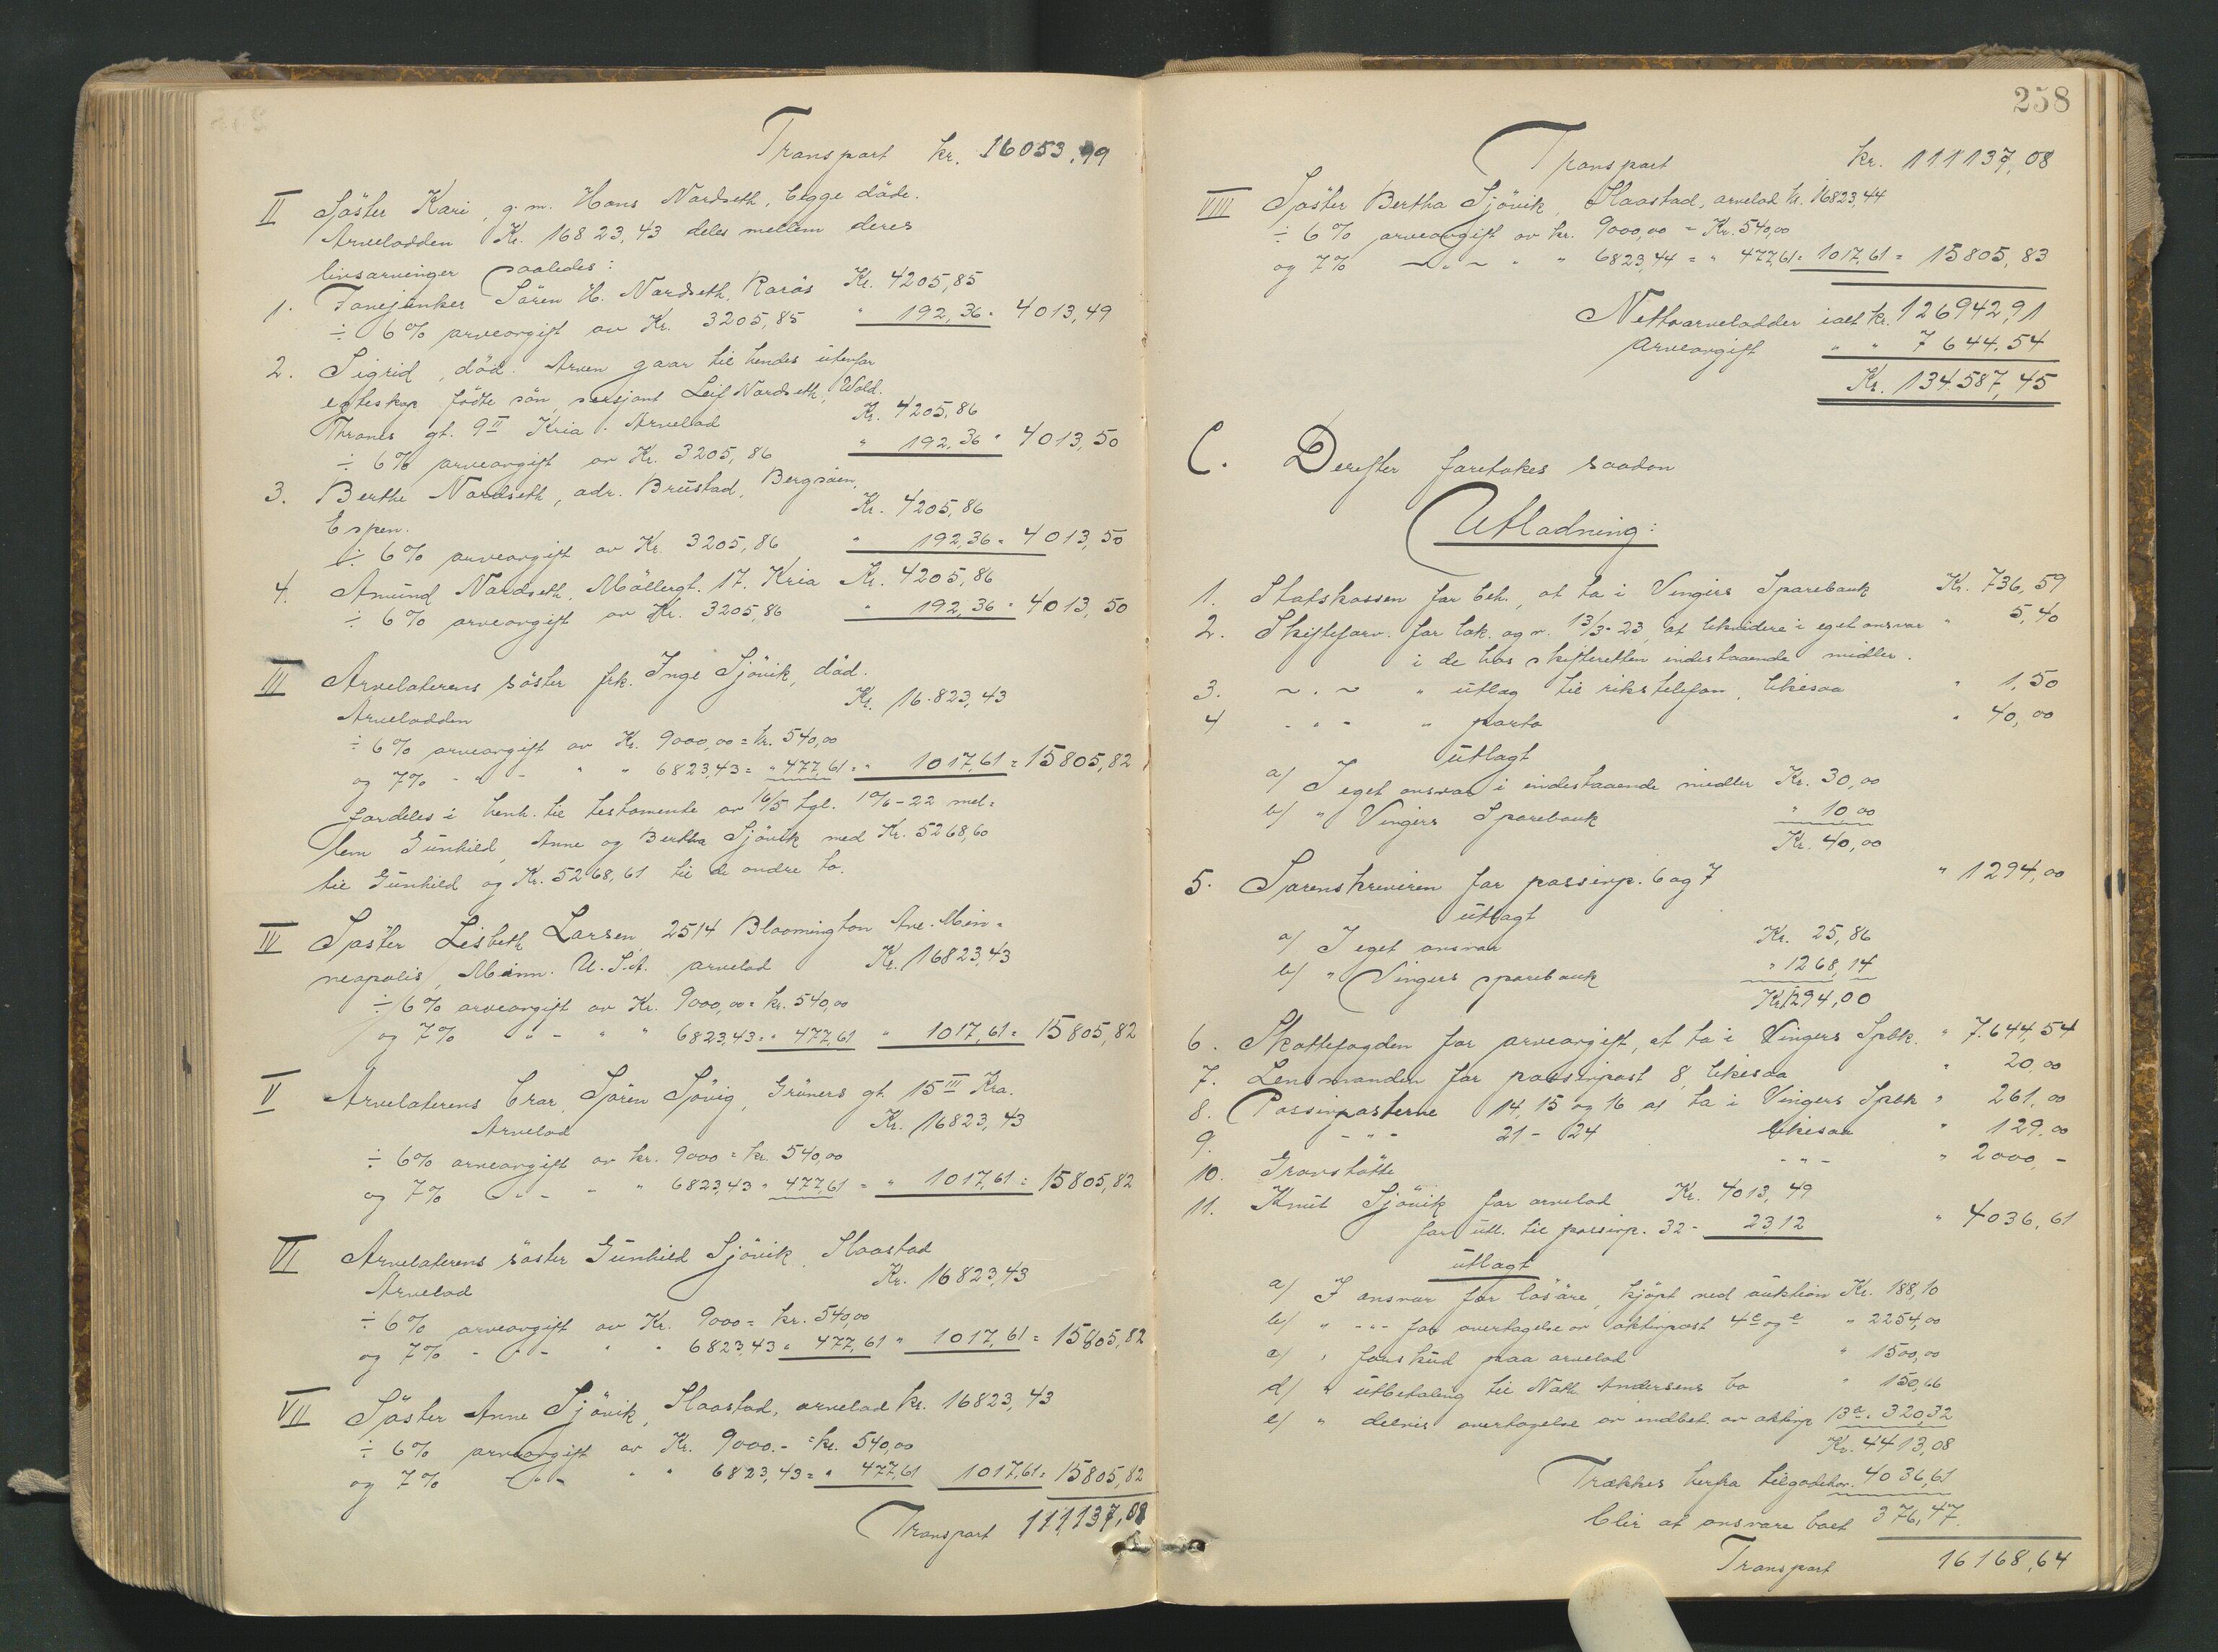 Transport kr. 16053,99
II Söster Kari, g.m. Hans Nordseth, begge döde.
Arvelodden Kr. 16823,43 deles mellem deres
livsarvinger saaledes:
1. Fanejunker Sören H. Nordseth, Röros Kr. 4205,85
÷ 6% arveavgift av Kr. 3205,85 " 192,36 = 4013,49
2. Sigrid, död. Arven gaar til hendes utenfor
egteskap födte sön, sersjant Leif Nordseth, Wold.
Thranes gt. 9 II Kria. Arvelod Kr. 4205,86
÷ 6% arveavgift av Kr. 3205,86 " 192,36 = 4013,50
3. Berthe Nordseth, adr. Brustad, Bergsöen,
Espen. Kr. 4205,86
÷ 6% arveavgift av Kr. 3205,86 " 192,36 = 4013,50
4. Amund Nordseth, Möllergt. 17. Kria Kr. 4205,86
÷ 6% arveavgift av Kr. 3205,86 " 192,36 = 4013,50
III Arvelaterens söster frk. Inge Sjövik, död.
Arvelodden Kr. 16.823,43
÷ 6% arveavgift av Kr. 9000,00 = kr. 540,00
og 7% - " - " " 6823,43 = " 477,61 = " 1017,61 = 15805,82
fordeles i henh. til testamente av 16/5 tgl. 10/6-22 mel=
lem Gunhild, Anne og Bertha Sjövik med Kr. 5268,60
til Gunhild og Kr. 5268,61 til de andre to.
IV Söster Lisbeth Larsen, 2514 Bloomington Ave. Min=
neapolis, Minn. U.S.A. arvelod Kr. 16823,43
÷ 6% arveavgift av Kr. 9000,00 = kr. 540,00
og 7% " - " " 6823,43 = " 477,61 " 1017,61 = 15805,82
V Arvelaterens bror, Sören Sjövig, Grüners gt 15 III Kra.
Arvelod Kr. 16823,43
÷ 6% arveavgift av kr. 9000 = kr. 540,00
og 7% " - - " 6823,43 " 477,61 = " 1017,61 = 15805,82
VI Arvelaterens söster Gunhild Sjövik, Haastad
Arvelod Kr. 16823,43
÷ 6% arveavgift av Kr. 9000 = kr. 540,00
og 7% - " - " " 6823,43 " 477,61 " 1017,61 = 15805,82
VII Söster Anne Sjövik, Haastad, arvelod kr. 16823,43
÷ 6% arveavgift av Kr. 9000.- = kr. 540,00
og 7% " - " " 6823,43 = " 477,61 1017,61 = 15805,82
Transport 111137,08
258
Transport kr. 111137,08
VIII Söster Bertha Sjövik, Haastad, arvelod kr. 16823,44
÷ 6% arveavgift av kr. 9000,00 = Kr. 540,00
og 7% ~ " ~ " " 6823,44 = " 477,61 = 1017,61 = 15805,83
Nettoarvelodder ialt kr. 126942,91
Arveavgift " " 7644,54
Kr. 134587,45
C. Derefter foretokes saadan
Utlodning:
1. Statskassen for beh., at ta i Vingers Sparebank Kr. 736,59
2. Skiftesorv. for lok. og r. 13/3-23, at likvidere i eget ansvar " 5,40
i de hos skifteretten indestaaende midler.
3. ~ " ~ " utlæg til rikstelefon, likesaa " 1,50
4 - " - " porto " 40,00
utlagt
a) I eget ansvar i indestaaende midler Kr. 30,00
b) " Vingers Sparebank " 10,00
Kr. 40,00
5. Sorenskriveren for passivp. 6 og 7 " 1294,00
utlagt
a) I eget ansvar Kr. 25,86
b) " Vingers sparebank " 1268,14
Kr. 1294,00
6. Skattefogden for arveavgift, at ta i Vingers Spbk. " 7.644,54
7. Lensmanden for passivpost 8, likesaa " 20,00
8. Passivposterne 14, 15 og 16 at ta i Vingers Spbk " 261,00
9. - " - 21 - 24 likesaa " 129,00
10. Gravstötte - " - " 2000,-
11. Knut Sjövik for arvelod Kr. 4013,49
for utl. til passivp. 32 - 23,12 " 4036,61
utlagt
a) I ansvar for lösöre, kjöpt ved auktion Kr. 188,10
b) " - " - for overtagelse av aktivpost 4 c og e " 2254,00
c) " forskud paa arvelod " 1500,00
d) " utbetaling til Nath. Andersens bo " 150,66
e) " delvis overtagelse av indbet. av aktivp 13 a. 320,32
Kr. 4413,08
Trækkes herfra tilgodehav. 4036,61
blir at ansvare boet 376,47.
Transport 16168,64